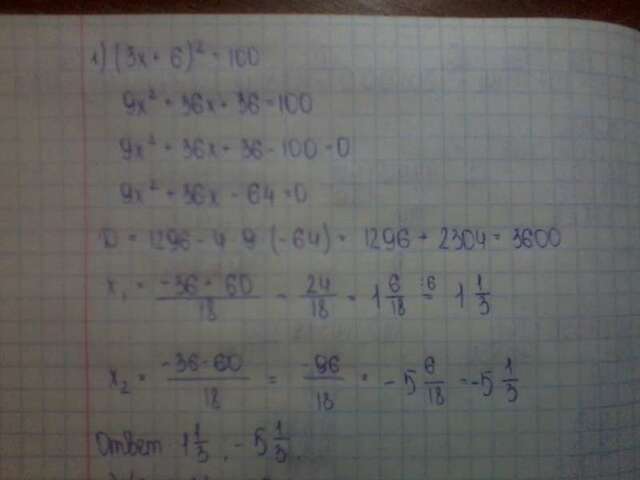 1) (3x + 6)² = 100
9x² + 36x + 36 = 100
9x² + 36x + 36 - 100 = 0
9x² + 36x - 64 = 0
D = 1296 - 4 · 9 · (-64) = 1296 + 2304 = 3600
x₁ = (-36 + 60)/18 = 24/18 = 1 6/18 :6 = 1 1/3
x₂ = (-36 - 60)/18 = -96/18 = -5 6/18 = -5 1/3
Ответ: 1 1/3, -5 1/3.